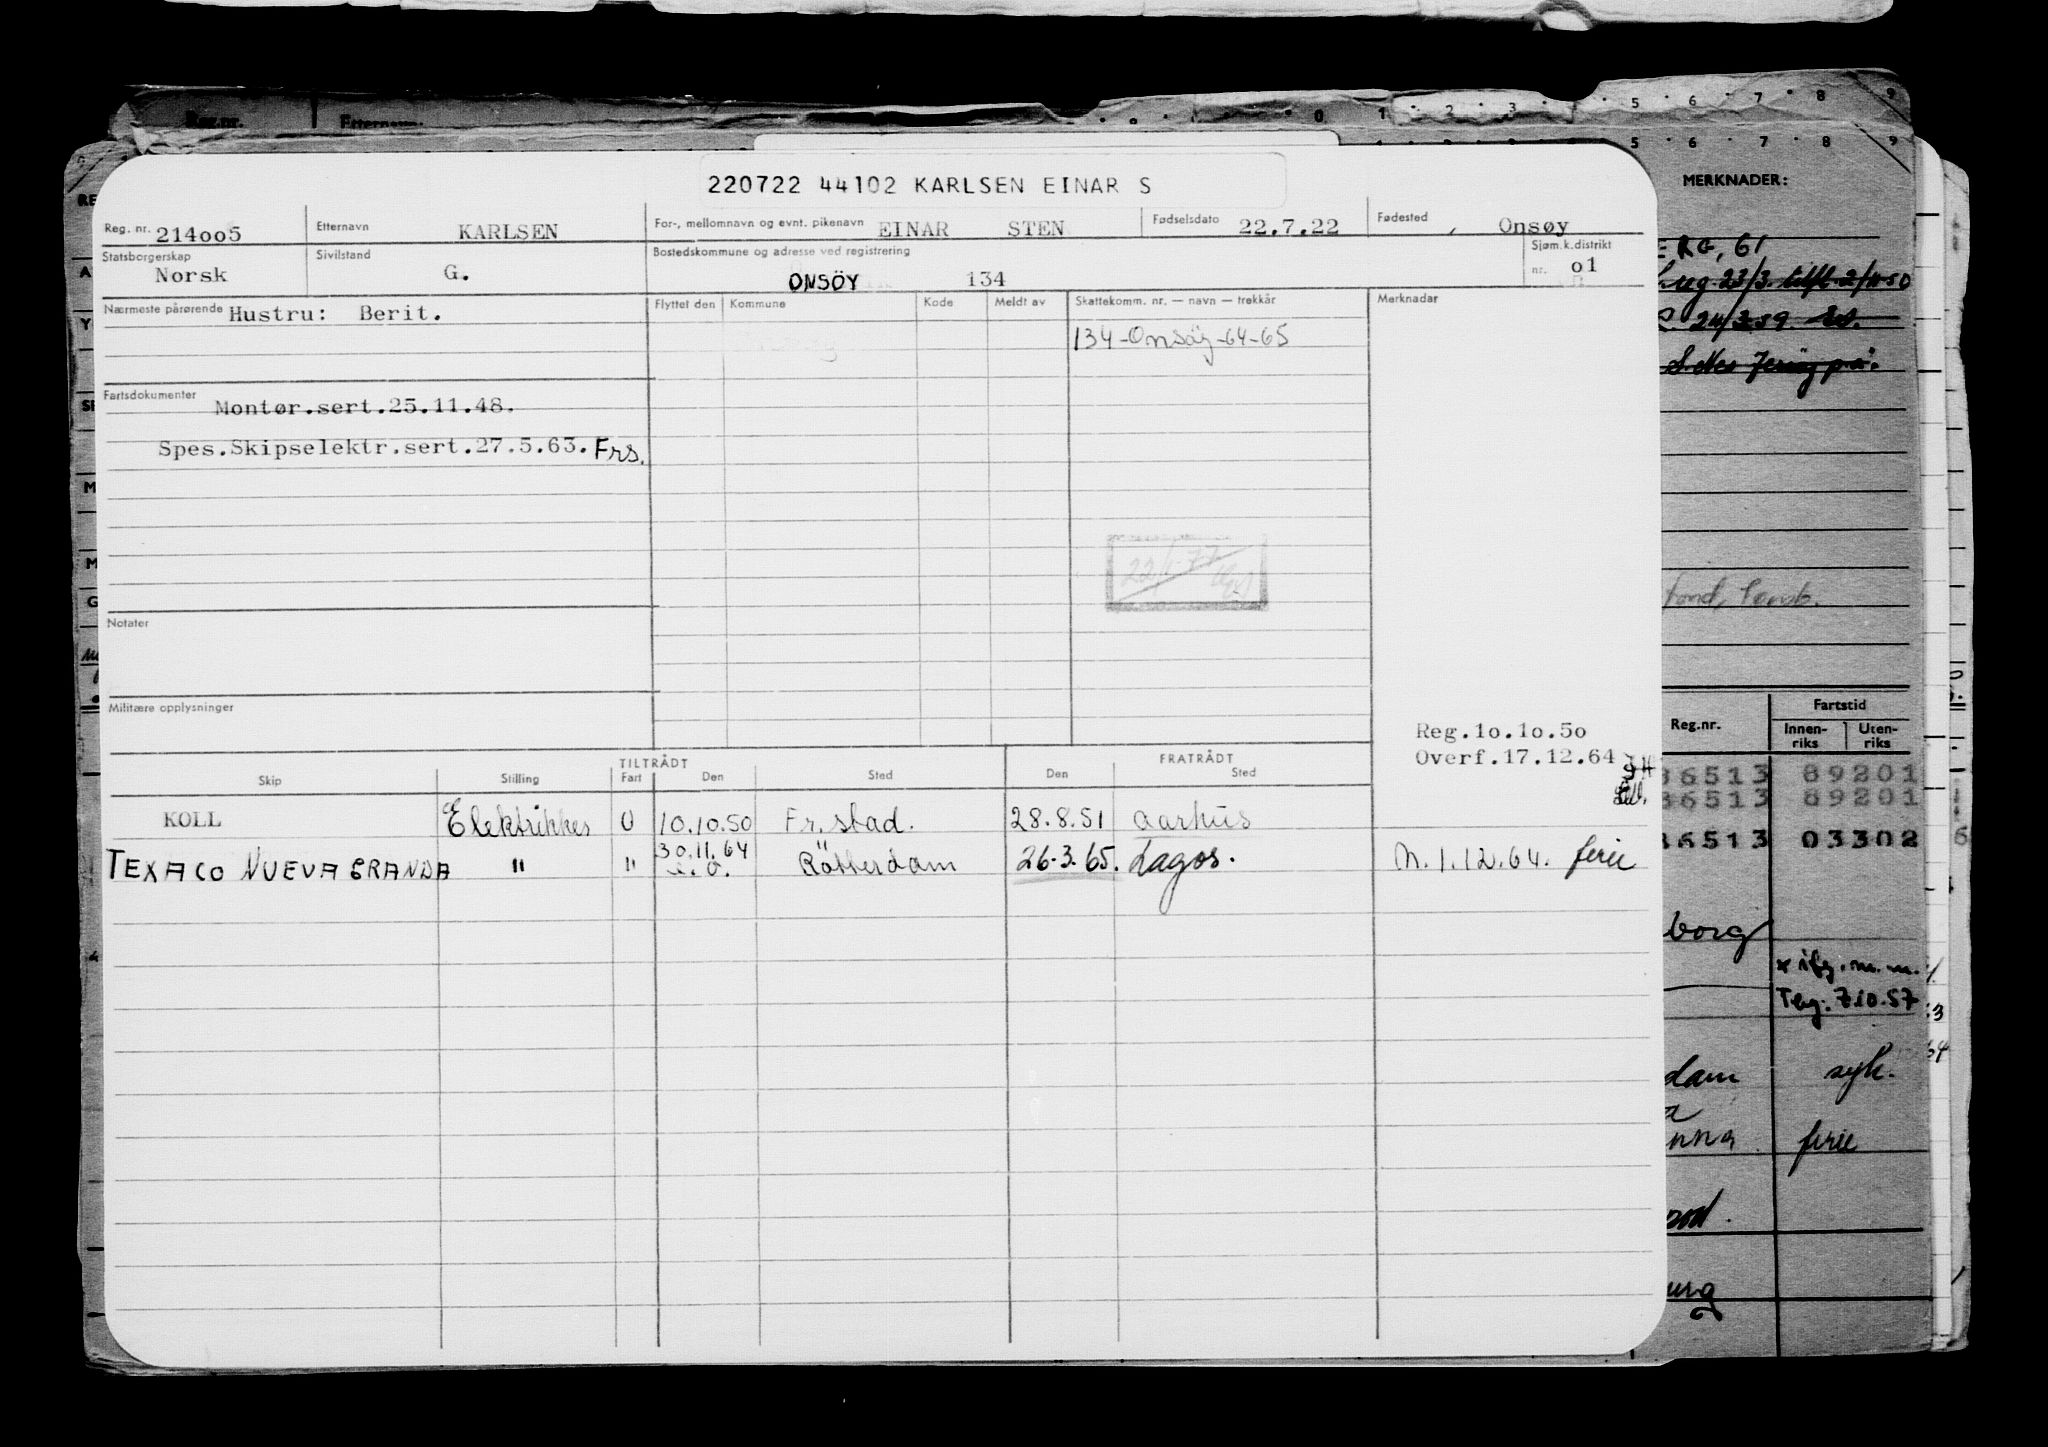 Reg.nr. Etternavn.
0 1 2 3 5 6 7 8 9
5 6 7 8 9
MERKNADER:
220722 44102 KARLSEN EINAR S
Reg. nr. 214oo5 Etternavn KARLSEN For-, mellomnavn og evnt. pikenavn EINAR STEN Fødselsdato 22.7.22 Fødested , Onsøy
Statsborgerskap Norsk Sivilstand G. Bostedskommune og adresse ved registrering ONSÖY 134 Sjøm.k.distrikt nr. o1
Nærmeste pårørende Hustru: Berit. Flyttet den Kommune Kode Meldt av Skattekomm. nr. — navn — trekkår Merknadar
134-Onsöy-64-65
Fartsdokumenter Montør.sert.25.11.48.
Spes.Skipselektr.sert.27.5.63. Frs.
Notater
Militære opplysninger
Reg.1o.1o.5o
Overf.17.12.64
TILTRÅDT FRATRÅDT
Skip Stilling Fart Den Sted Den Sted
KOLL Elektrikker U 10.10.50 Fr.stad. 28.8.51 Aarhus
TEXACO NUEVA GRANDA " " 30.11.64 Rötterdam 26.3.65. Lagos. M.1.12.64. ferie
ERG, 61
Reg.nr. Fartstid
Innen-riks Uten-riks
36513 89201
36513 89201
36513 03302
borg
Tlg. 7.10.57
dam syk.
nna ferie
urg